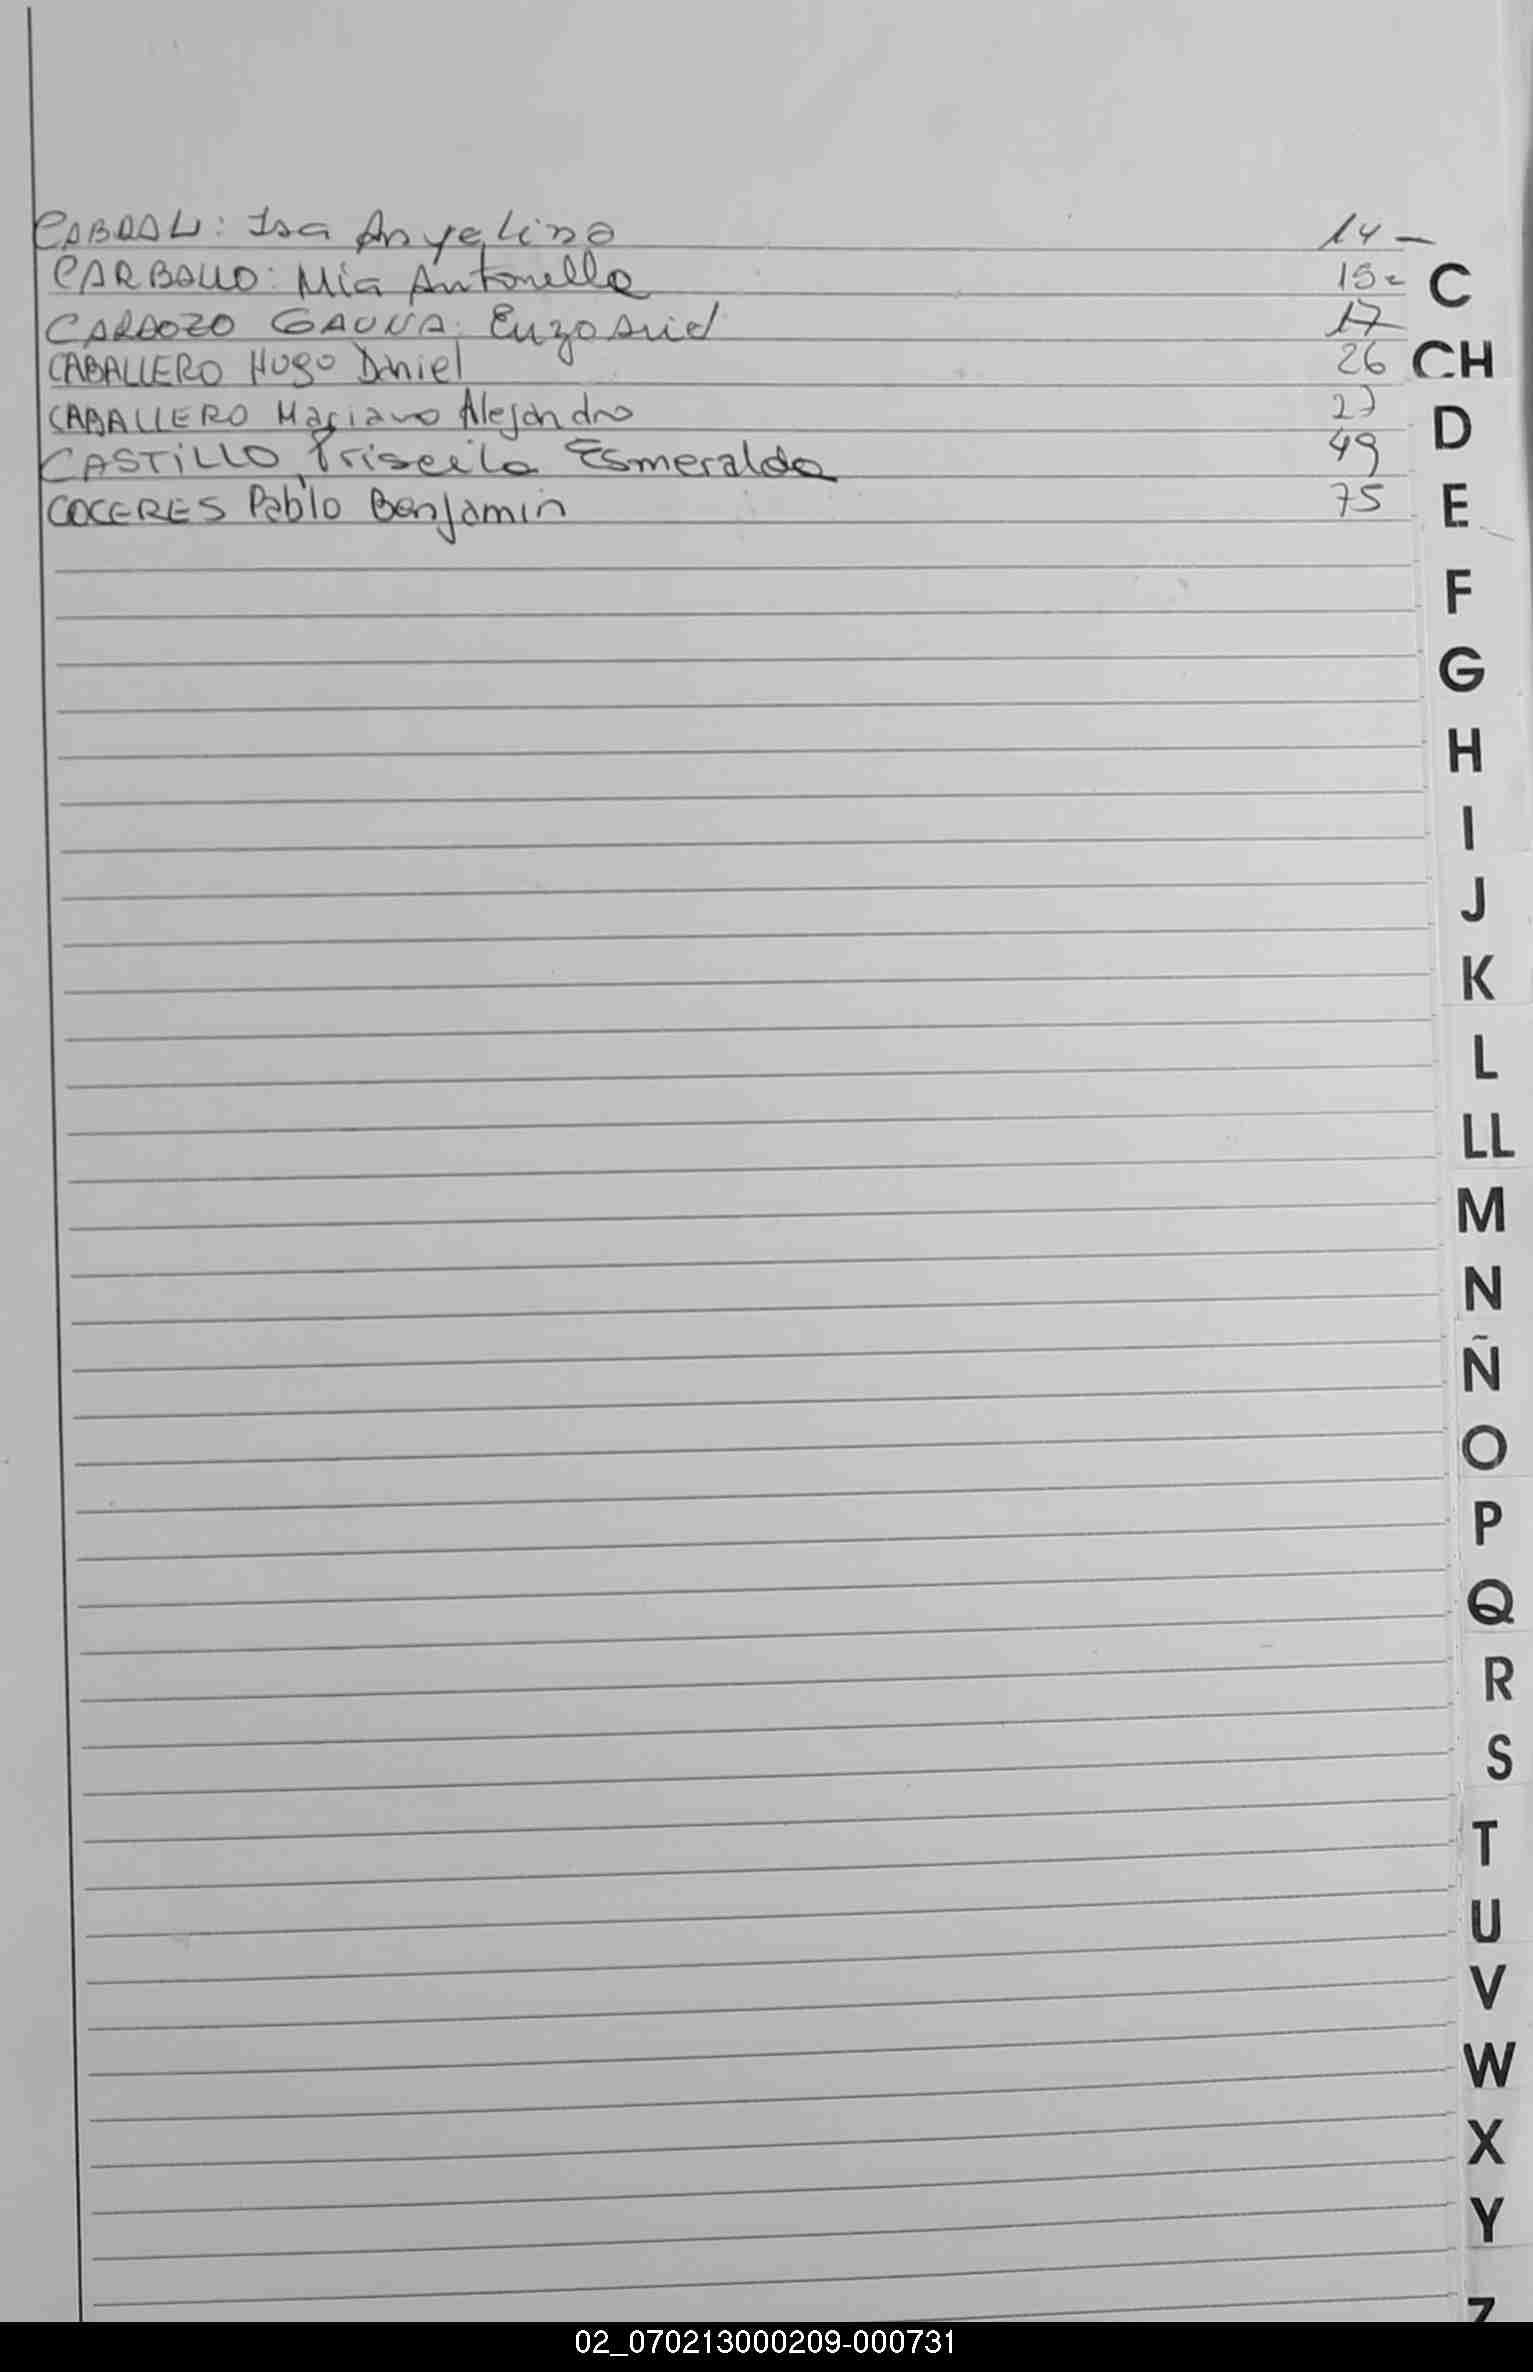 CABRAL: Isa Angelina 14 —
CARBALLO: Mia Antonella 15-
CARDOZO GAUNA: Enzo 17
CABALLERO Hugo Daniel 26
CABALLERO Mariano Alejandro 27
CASTILLO, Priscila Esmeralda 49
COCERES Pablo Benjamin 75
C
CH
D
E
F
G
H
I
J
K
L
LL
M
N
Ñ
O
P
Q
R
S
T
U
V
W
X
Y
Z
02_070213000209-000731